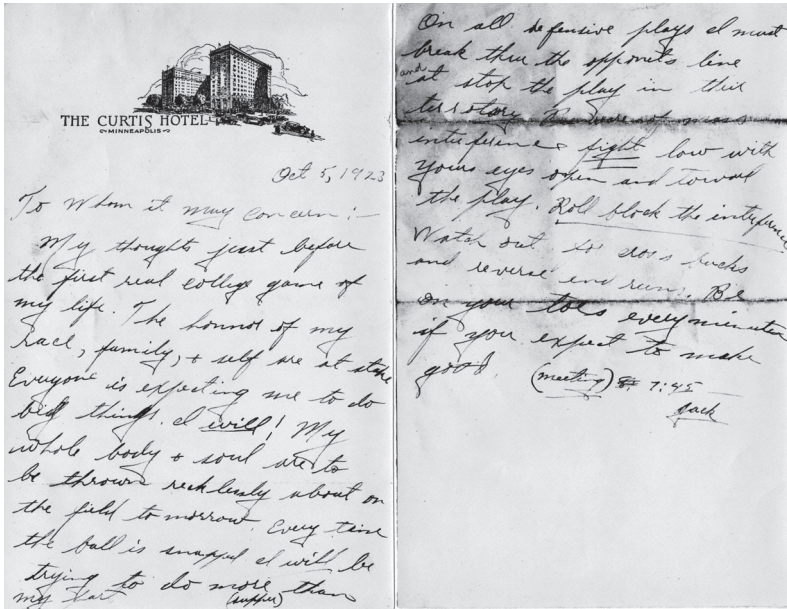 THE CURTIS HOTEL
MINNEAPOLIS
Oct 5, 1923
To Whom it may concern:-
My thoughts just before
the first real college game of
my life. The honnor of my
race, family, & self are at stake
Everyone is expecting me to do
big things. I will! My
whole body & soul are to
be thrown recklessly about on
the field tomorrow. Every time
the ball is snapped I will be
trying to do more than
my part. (supper)
On all defensive plays I must
break thru the opponets line
and stop the play in their
territory. Beware of mass
interference fight low with
yours eyes open and toward
the play. Roll block the interference
Watch out for cross bucks
and reverse end runs. Be
on your toes every minute
if you expect to make
good. (meeting) 7:45
Jack